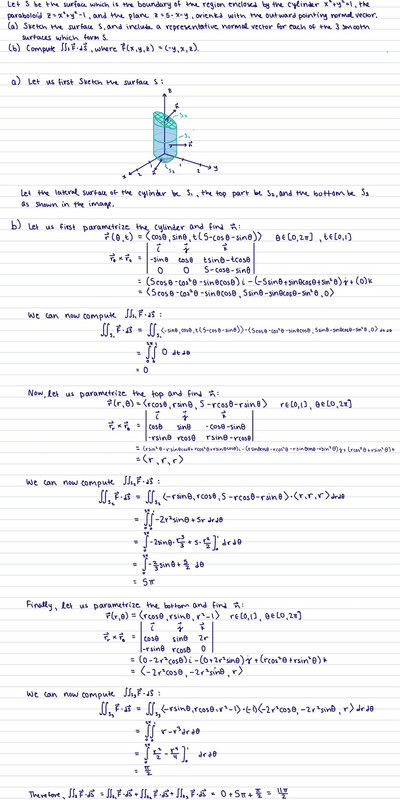 Let S be the surface which is the boundary of the region enclosed by the cylinder x²+y²=1, the
paraboloid z=x²+y²-1, and the plane z=5-x-y, oriented with the outward pointing normal vector.
(a) Sketch the surface S, and include a representative normal vector for each of the 3 smooth
surfaces which form S.
(b) Compute ∬ₛ F⃗·dS⃗, where F⃗(x,y,z) = (-y,x,z).
a) Let us first sketch the surface S:
z
n⃗
S₂
S₁
n⃗
1
2
1
2
x
y
S₃
Let the lateral surface of the cylinder be S₁, the top part be S₂, and the bottom be S₃
as shown in the image.
b) Let us first parametrize the cylinder and find n⃗:
r⃗(θ,t) = (cosθ, sinθ, t(5-cosθ-sinθ)) θ∈[0,2π], t∈[0,1]
i⃗ j⃗ k⃗
r⃗θ × r⃗t = | -sinθ cosθ tsinθ-tcosθ |
0 0 5-cosθ-sinθ
= (5cosθ-cos²θ-sinθcosθ)i-(-5sinθ+sinθcosθ+sin²θ)j+(0)k
= (5cosθ-cos²θ-sinθcosθ, 5sinθ-sinθcosθ-sin²θ, 0)
We can now compute ∬ₛ₁ F⃗·dS⃗:
∬ₛ₁ F⃗·dS⃗ = ∬ₛ₁ (-sinθ, cosθ, t(5-cosθ-sinθ))·(5cosθ-cos²θ-sinθcosθ, 5sinθ-sinθcosθ-sin²θ, 0) dt dθ
= ∬ 0 dt dθ
= 0
Now, let us parametrize the top and find n⃗:
r⃗(r,θ) = (rcosθ, rsinθ, 5-rcosθ-rsinθ) r∈[0,1], θ∈[0,2π]
i⃗ j⃗ k⃗
r⃗r × r⃗θ = | cosθ sinθ -cosθ-sinθ |
-rsinθ rcosθ rsinθ-rcosθ
= (r, r, r)
We can now compute ∬ₛ₂ F⃗·dS⃗:
∬ₛ₂ F⃗·dS⃗ = ∬ₛ₂ (-rsinθ, rcosθ, 5-rcosθ-rsinθ)·(r, r, r) dr dθ
= ∬ -2r²sinθ+5r dr dθ
= ∫ -2sinθ·r³/3 + 5·r²/2 ]₀¹ dr dθ
= ∫ -2/3 sinθ + 5/2 dθ
= 5π
Finally, let us parametrize the bottom and find n⃗:
r⃗(r,θ) = (rcosθ, rsinθ, r²-1) r∈[0,1], θ∈[0,2π]
i⃗ j⃗ k⃗
r⃗r × r⃗θ = | cosθ sinθ 2r |
-rsinθ rcosθ 0
= (0-2r²cosθ)i-(0+2r²sinθ)j+(rcos²θ+rsin²θ)k
= (-2r²cosθ, -2r²sinθ, r)
We can now compute ∬ₛ₃ F⃗·dS⃗:
∬ₛ₃ F⃗·dS⃗ = ∬ₛ₃ (-rsinθ, rcosθ, r²-1)·(-1)(-2r²cosθ, -2r²sinθ, r) dr dθ
= ∬ r-r³ dr dθ
= ∫ r²/2 - r⁴/4 ]₀¹ dr dθ
= π/2
Therefore, ∬ₛ F⃗·dS⃗ = ∬ₛ₁ F⃗·dS⃗ + ∬ₛ₂ F⃗·dS⃗ + ∬ₛ₃ F⃗·dS⃗ = 0 + 5π + π/2 = 11π/2